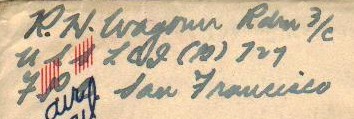 R. W. Wagoner Rdm 3/c
U S S L C I (R) 727
F P O San Francisco
air